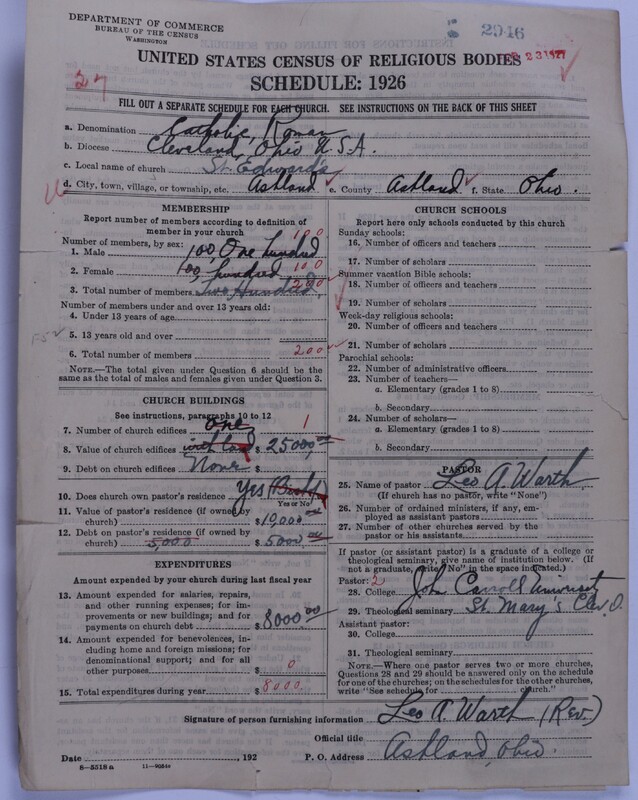 DEPARTMENT OF COMMERCE
BUREAU OF THE CENSUS
WASHINGTON
2946
UNITED STATES CENSUS OF RELIGIOUS BODIES
SCHEDULE: 1926
27
FILL OUT A SEPARATE SCHEDULE FOR EACH CHURCH. SEE INSTRUCTIONS ON THE BACK OF THIS SHEET
a. Denomination Catholic, Roman
b. Diocese Cleveland, Ohio U.S.A.
c. Local name of church St. Edward's
d. City, town, village, or township, etc. Ashland e. County Ashland f. State Ohio.
MEMBERSHIP
Report number of members according to definition of
member in your church
Number of members, by sex: 100
1. Male 100, One hundred
2. Female 100, hundred 100
3. Total number of members Two Hundred 200
Number of members under and over 13 years old:
4. Under 13 years of age
5. 13 years old and over
6. Total number of members 200
NOTE.—The total given under Question 6 should be the
same as the total of males and females given under Question 3.
CHURCH BUILDINGS
See instructions, paragraphs 10 to 12
7. Number of church edifices One 1
8. Value of church edifices with land $ 25000,00
9. Debt on church edifices None $
10. Does church own pastor's residence Yes
Yes or No
11. Value of pastor's residence (if owned by
church) $ 10,000.00
12. Debt on pastor's residence (if owned by
church) 5,000 $ 5000
EXPENDITURES
Amount expended by your church during last fiscal year
13. Amount expended for salaries, repairs,
and other running expenses; for im-
provements or new buildings; and for
payments on church debt $ 8000 00
14. Amount expended for benevolences, in-
cluding home and foreign missions; for
denominational support; and for all
other purposes $ 0
15. Total expenditures during year $ 8000.
CHURCH SCHOOLS
Report here only schools conducted by this church
Sunday schools:
16. Number of officers and teachers
17. Number of scholars
Summer vacation Bible schools:
18. Number of officers and teachers
19. Number of scholars
Week-day religious schools:
20. Number of officers and teachers
21. Number of scholars
Parochial schools:
22. Number of administrative officers
23. Number of teachers—
a. Elementary (grades 1 to 8)
b. Secondary
24. Number of scholars—
a. Elementary (grades 1 to 8)
b. Secondary
PASTOR
25. Name of pastor Leo A. Warth
(If church has no pastor, write "None")
26. Number of ordained ministers, if any, em-
ployed as assistant pastors
27. Number of other churches served by the
pastor or his assistants
If pastor (or assistant pastor) is a graduate of a college or
theological seminary, give name of institution below. (If
not a graduate, write "No" in the space indicated.)
Pastor: 2
28. College John Carroll University
29. Theological seminary St. Mary's Clev. O.
Assistant pastor:
30. College
31. Theological seminary
NOTE.—Where one pastor serves two or more churches,
Questions 28 and 29 should be answered only on the schedule
for one of the churches; on the schedules for the other churches,
write "See schedule for church."
Signature of person furnishing information Leo A. Warth (Rev.)
Official title
Date , 192 P. O. Address Ashland, Ohio.
8-5518a 11-9024